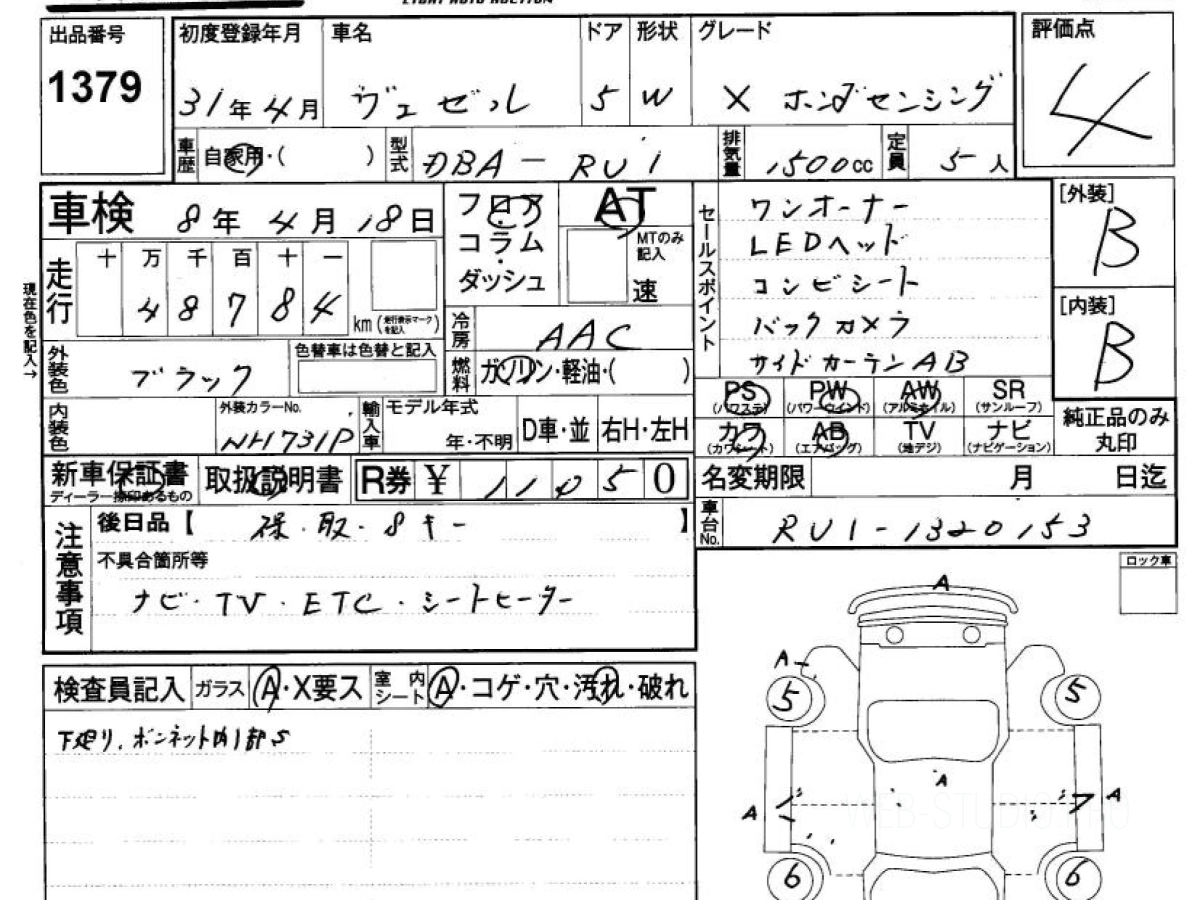 出品番号
1379
初度登録年月
31年4月
車名
ヴェゼル
ドア
5
形状
W
グレード
X ホンダセンシング
評価点
4
車歴
自家用・( )
型式
DBA-RU1
排気量
1500cc
定員
5人
車検 8年4月18日
フロア
コラム
・
ダッシュ
AT
MTのみ
記入
速
セールスポイント
ワンオーナー
LEDヘッド
コンビシート
バックカメラ
サイドカーテンAB
[外装]
B
[内装]
B
現在色を記入→
走行
十 万 千 百 十 一
4 8 7 8 4
km (走行表示マークを記入)
冷房
AAC
燃料
ガソリン・軽油・( )
外装色
ブラック
色替車は色替と記入
内装色
外装カラーNo.
NH731P
輸入車
モデル年式
年・不明
D車・並
右H・左H
PS
(パワステ)
PW
(パワーウインド)
AW
(アルミホイル)
SR
(サンルーフ)
カワ
(カワシート)
AB
(エアバッグ)
TV
(地デジ)
ナビ
(ナビゲーション)
純正品のみ
丸印
新車保証書
取扱説明書
R券 ¥ 11050
名変期限 月 日迄
車台No.
RU1-1320153
注意事項
後日品【 保・取・8キー 】
不具合箇所等
ナビ・TV・ETC・シートヒーター
ロック車
検査員記入
ガラス
A・X要ス
室内
シート
A・コゲ・穴・汚れ・破れ
A
A
5
5
A
A
A
6
6
WEB-STUDIO.PRO